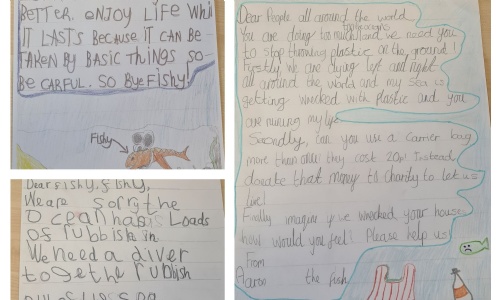 BETTER. ENJOY LIFE WHIL
IT LASTS BECAUSE IT CAN BE
TAKEN BY BASIC THINGS SO
BE CARFUL. SO BYE FISHY!
Fishy
Dear Fishy, fishy,
We are sorry the
Ocean has Loads
of rubbish in
We need a diver
to get the rubbish
Dear People all around the world
You are doing too much and we need you
to stop throwing plastic on the ground!
Firstly, we are dying left and right
all around the world and my sea is
getting wrecked with plastic and you
are ruining my life
Secondly, can you use a carrier bag
more than once they cost 20p! Instead,
donate that money to charity to let us
live!
Finally imagine I've wrecked your house
how would you feel! Please help us!
From
Aaron the fish